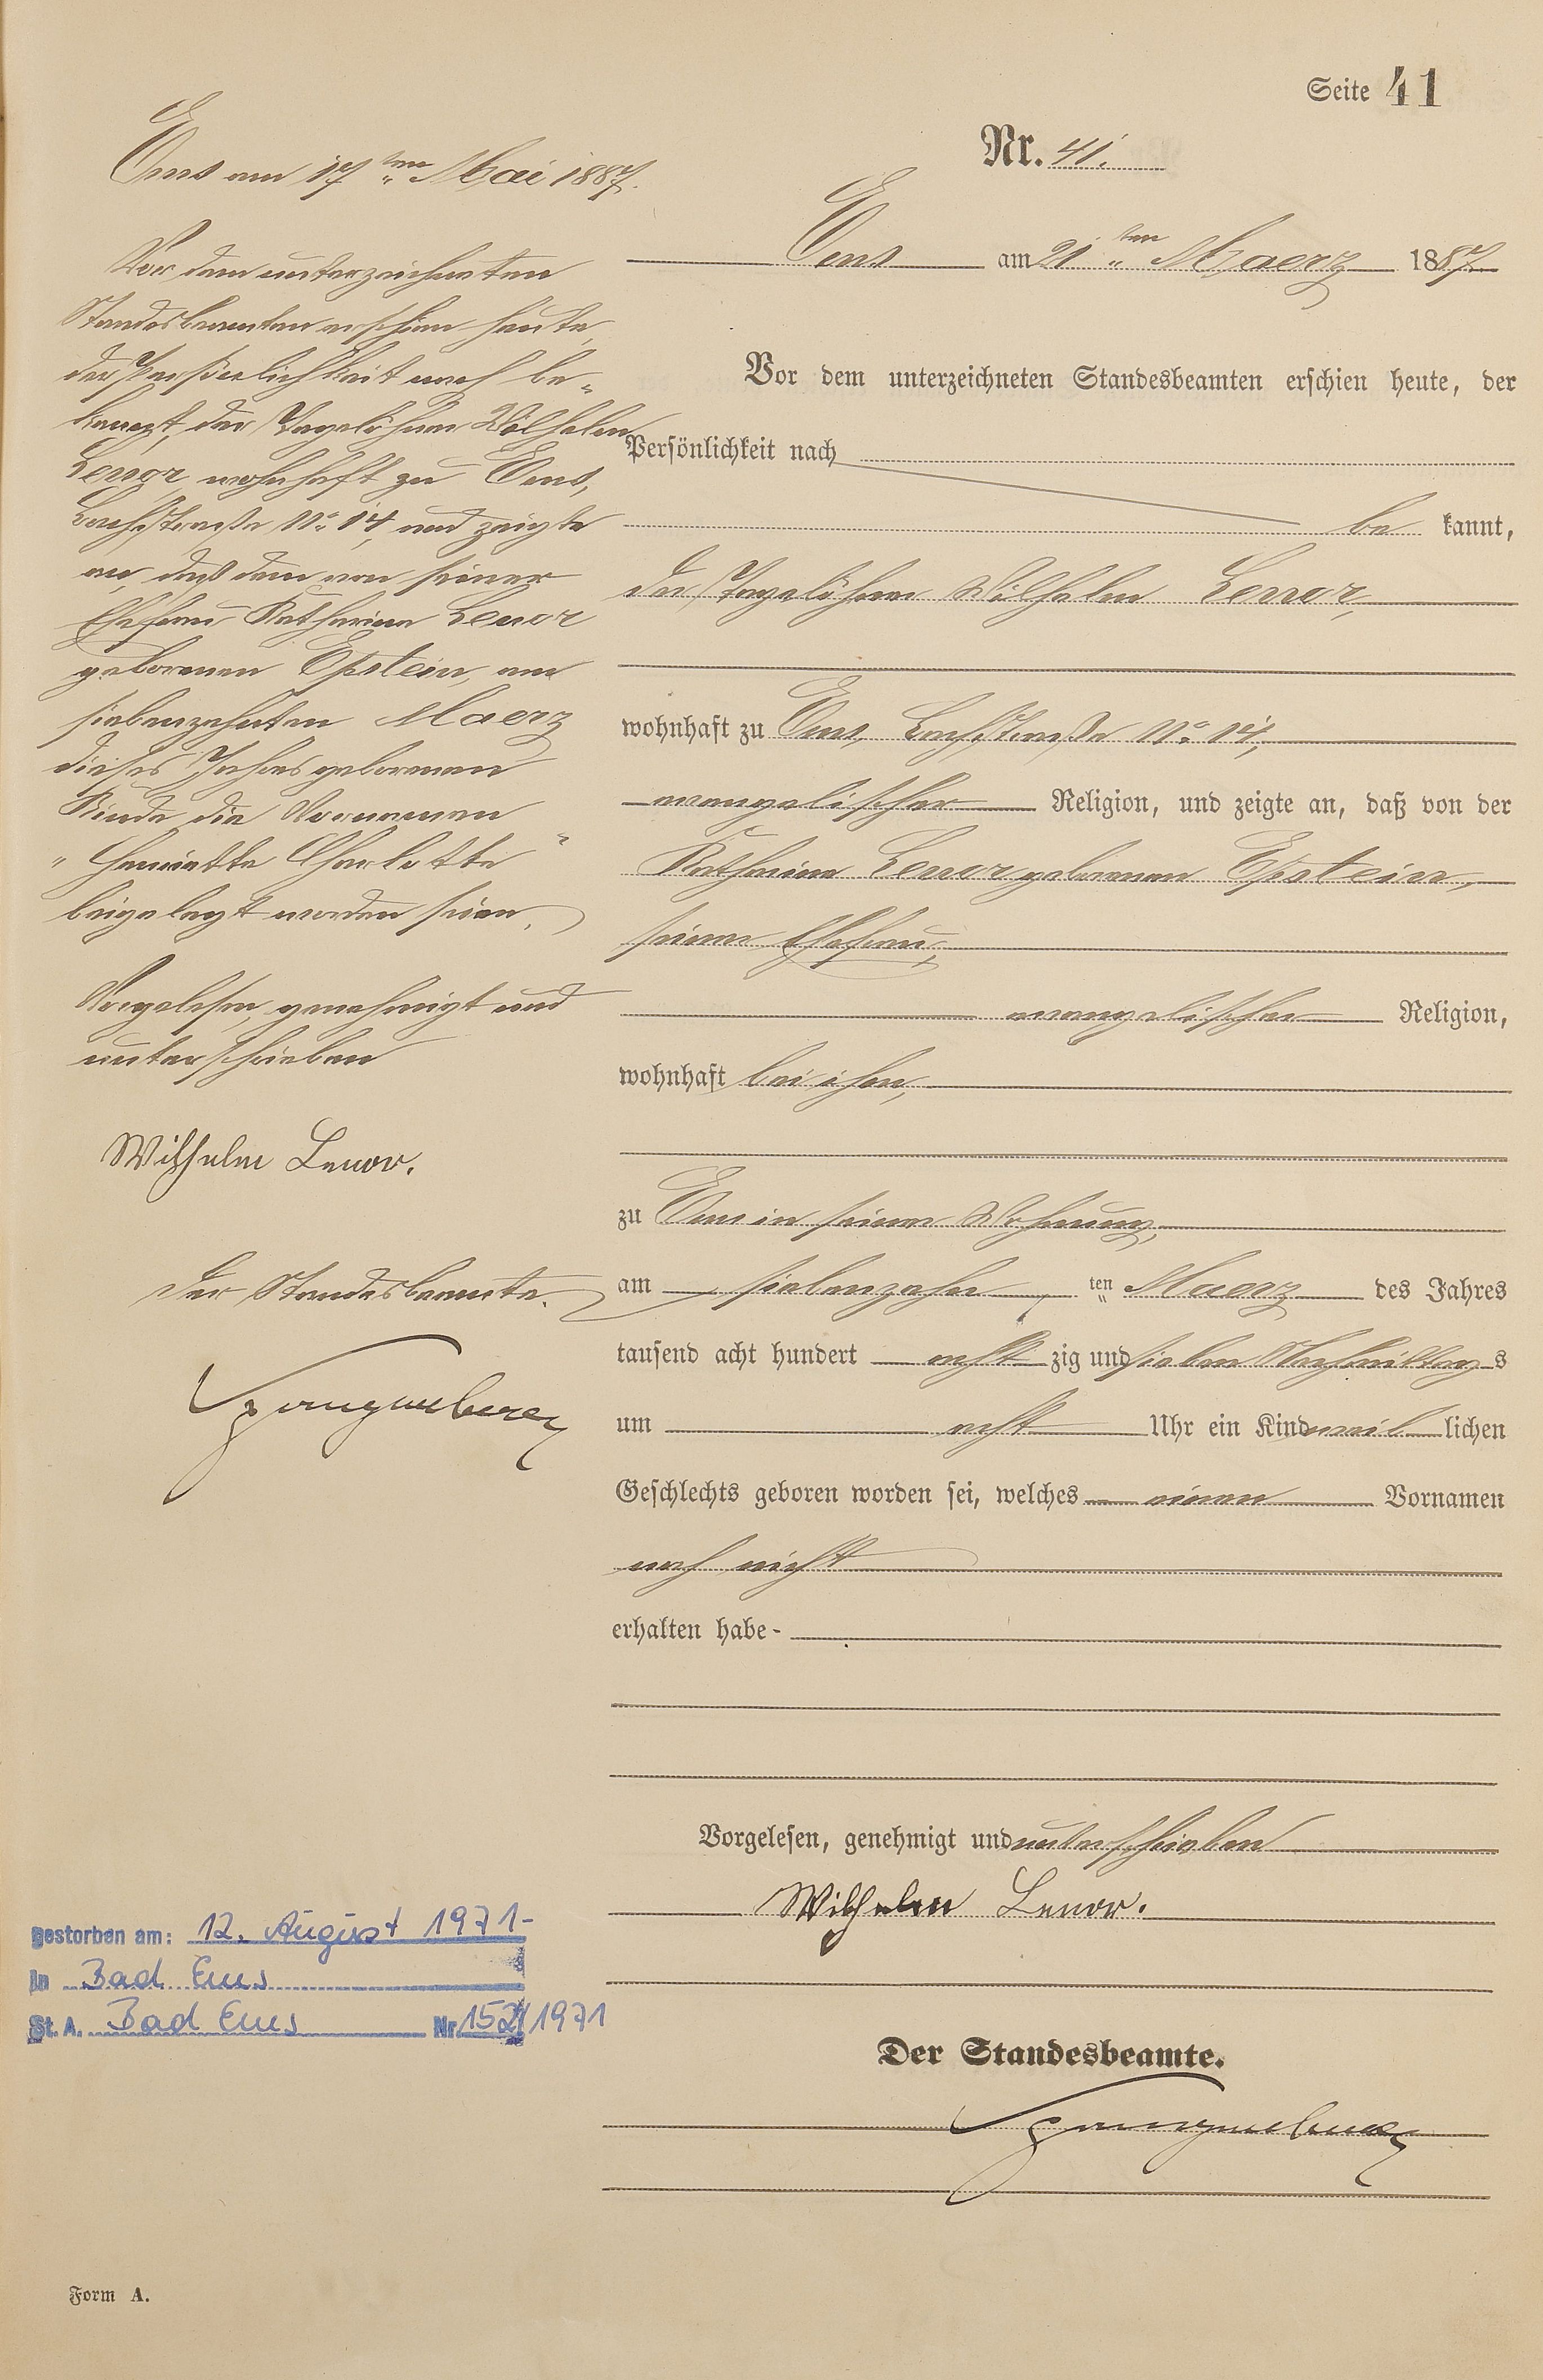 Seite 41
Nr. 41.
Ems am 21ten Maerz 1887.
Vor dem unterzeichneten Standesbeamten erschien heute, der
Persönlichkeit nach
be kannt,
der Tagelöhner Wilhelm Lenor,
wohnhaft zu Ems, Bachstraße No 14,
evangelischer Religion, und zeigte an, daß von der
Katharina Lenor geborenen Epstein,
seiner Ehefrau,
evangelischer Religion,
wohnhaft bei ihm,
zu Ems in seiner Wohnung,
am siebenzehn ten Maerz des Jahres
tausend acht hundert acht zig und sieben Nachmittag s
um acht Uhr ein Kind weib lichen
Geschlechts geboren worden sei, welches einen Vornamen
noch nicht
erhalten habe-
Vorgelesen, genehmigt und unterschrieben
Wilhelm Lenor.
Der Standesbeamte.
Ems am 17ten Mai 1887.
Vor dem unterzeichneten
Standesbeamten erschien heute,
der Persönlichkeit nach be-
kannt, der Tagelöhner Wilhelm
Lenor, wohnhaft zu Ems,
Bachstraße No 14, und zeigte
an, daß dem von seiner
Ehefrau Katharina Lenor
geborenen Epstein, am
siebenzehnten Maerz
dieses Jahres geborenen
Kinde die Vornamen
"Henriette Charlotte"
beigelegt worden seien.
Vorgelesen, genehmigt und
unterschrieben
Wilhelm Lenor.
Der Standesbeamte.
gestorben am: 12. August 1971-
in Bad Ems
St. A. Bad Ems Nr 152/1971
Form A.